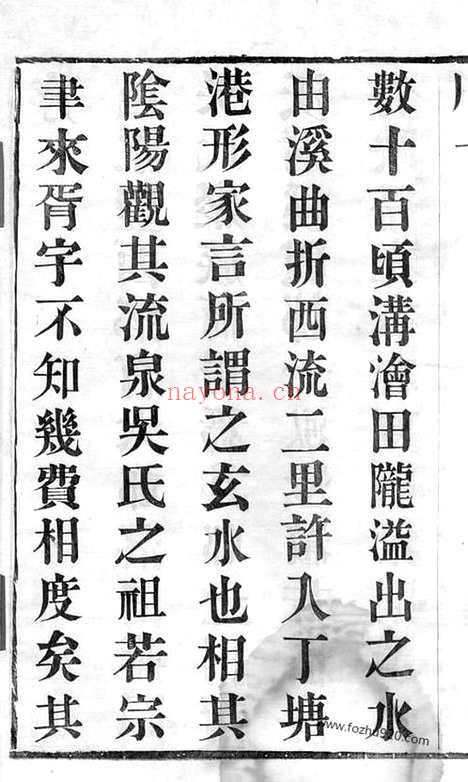 數十百頃溝澮田隴溢出之水
由溪曲折西流二里許入丁塘
港形家言所謂之玄水也相其
陰陽觀其流泉吳氏之祖若宗
聿來胥宇不知幾費相度矣其
nayona.cn
www.fozhu920.com